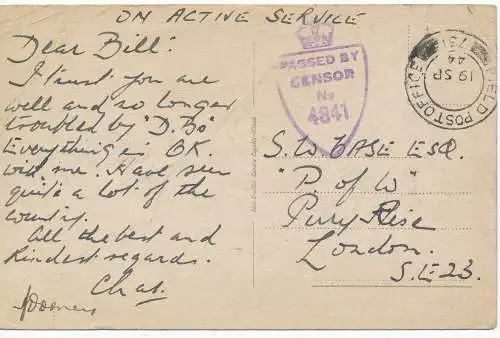 ON ACTIVE SERVICE
Dear Bill:
I trust you are
well and no longer
troubled by "D.Bs"
Everything is OK.
with me. Have seen
quite a lot of the
country.
All the best and
Kindest regards.
Chas.
PASSED BY
CENSOR
No
4841
FIELD POST OFFICE
19 SP
S.W. BASE ESQ.
"P. of W"
Perry Rise
London.
S.E.23.